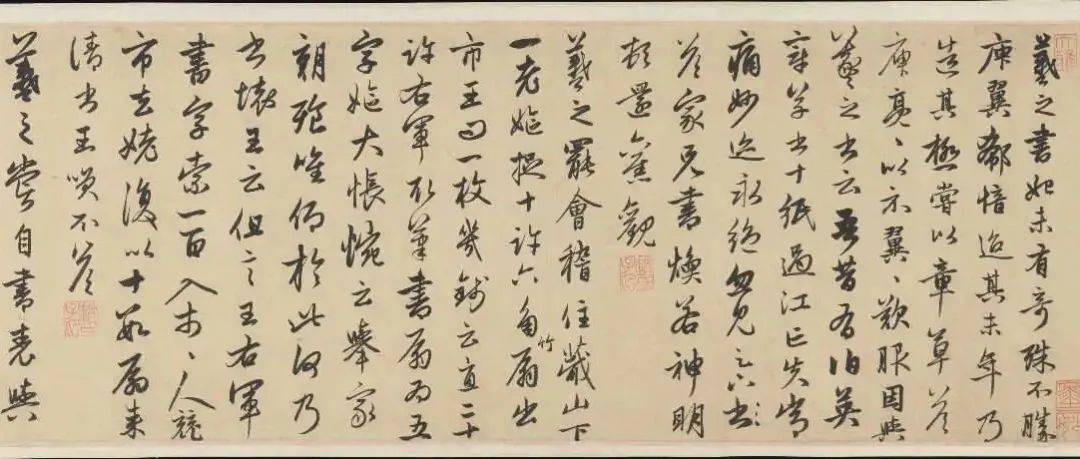 羲之書初未有奇殊不勝
庾翼郗愔迨其末年乃
造其極嘗以章草答
庾亮〻以示翼〻歎服因與
羲之書云吾昔有伯英
章草書十紙過江亡失常
痛妙迹永絕忽見足下書
答家兄書煥若神明
頓還舊觀
羲之罷會稽住蕺山下
一老嫗捉十許六角竹扇出
市王曰一枚幾錢云直二十
許右軍取筆書扇為五
字嫗大悵惋云舉家
朝飧唯仰於此何乃
書壞王云但言王右軍
書字索一百入市〻人競
市去姥復以十數扇來
請書王笑不答
羲之嘗自書表與